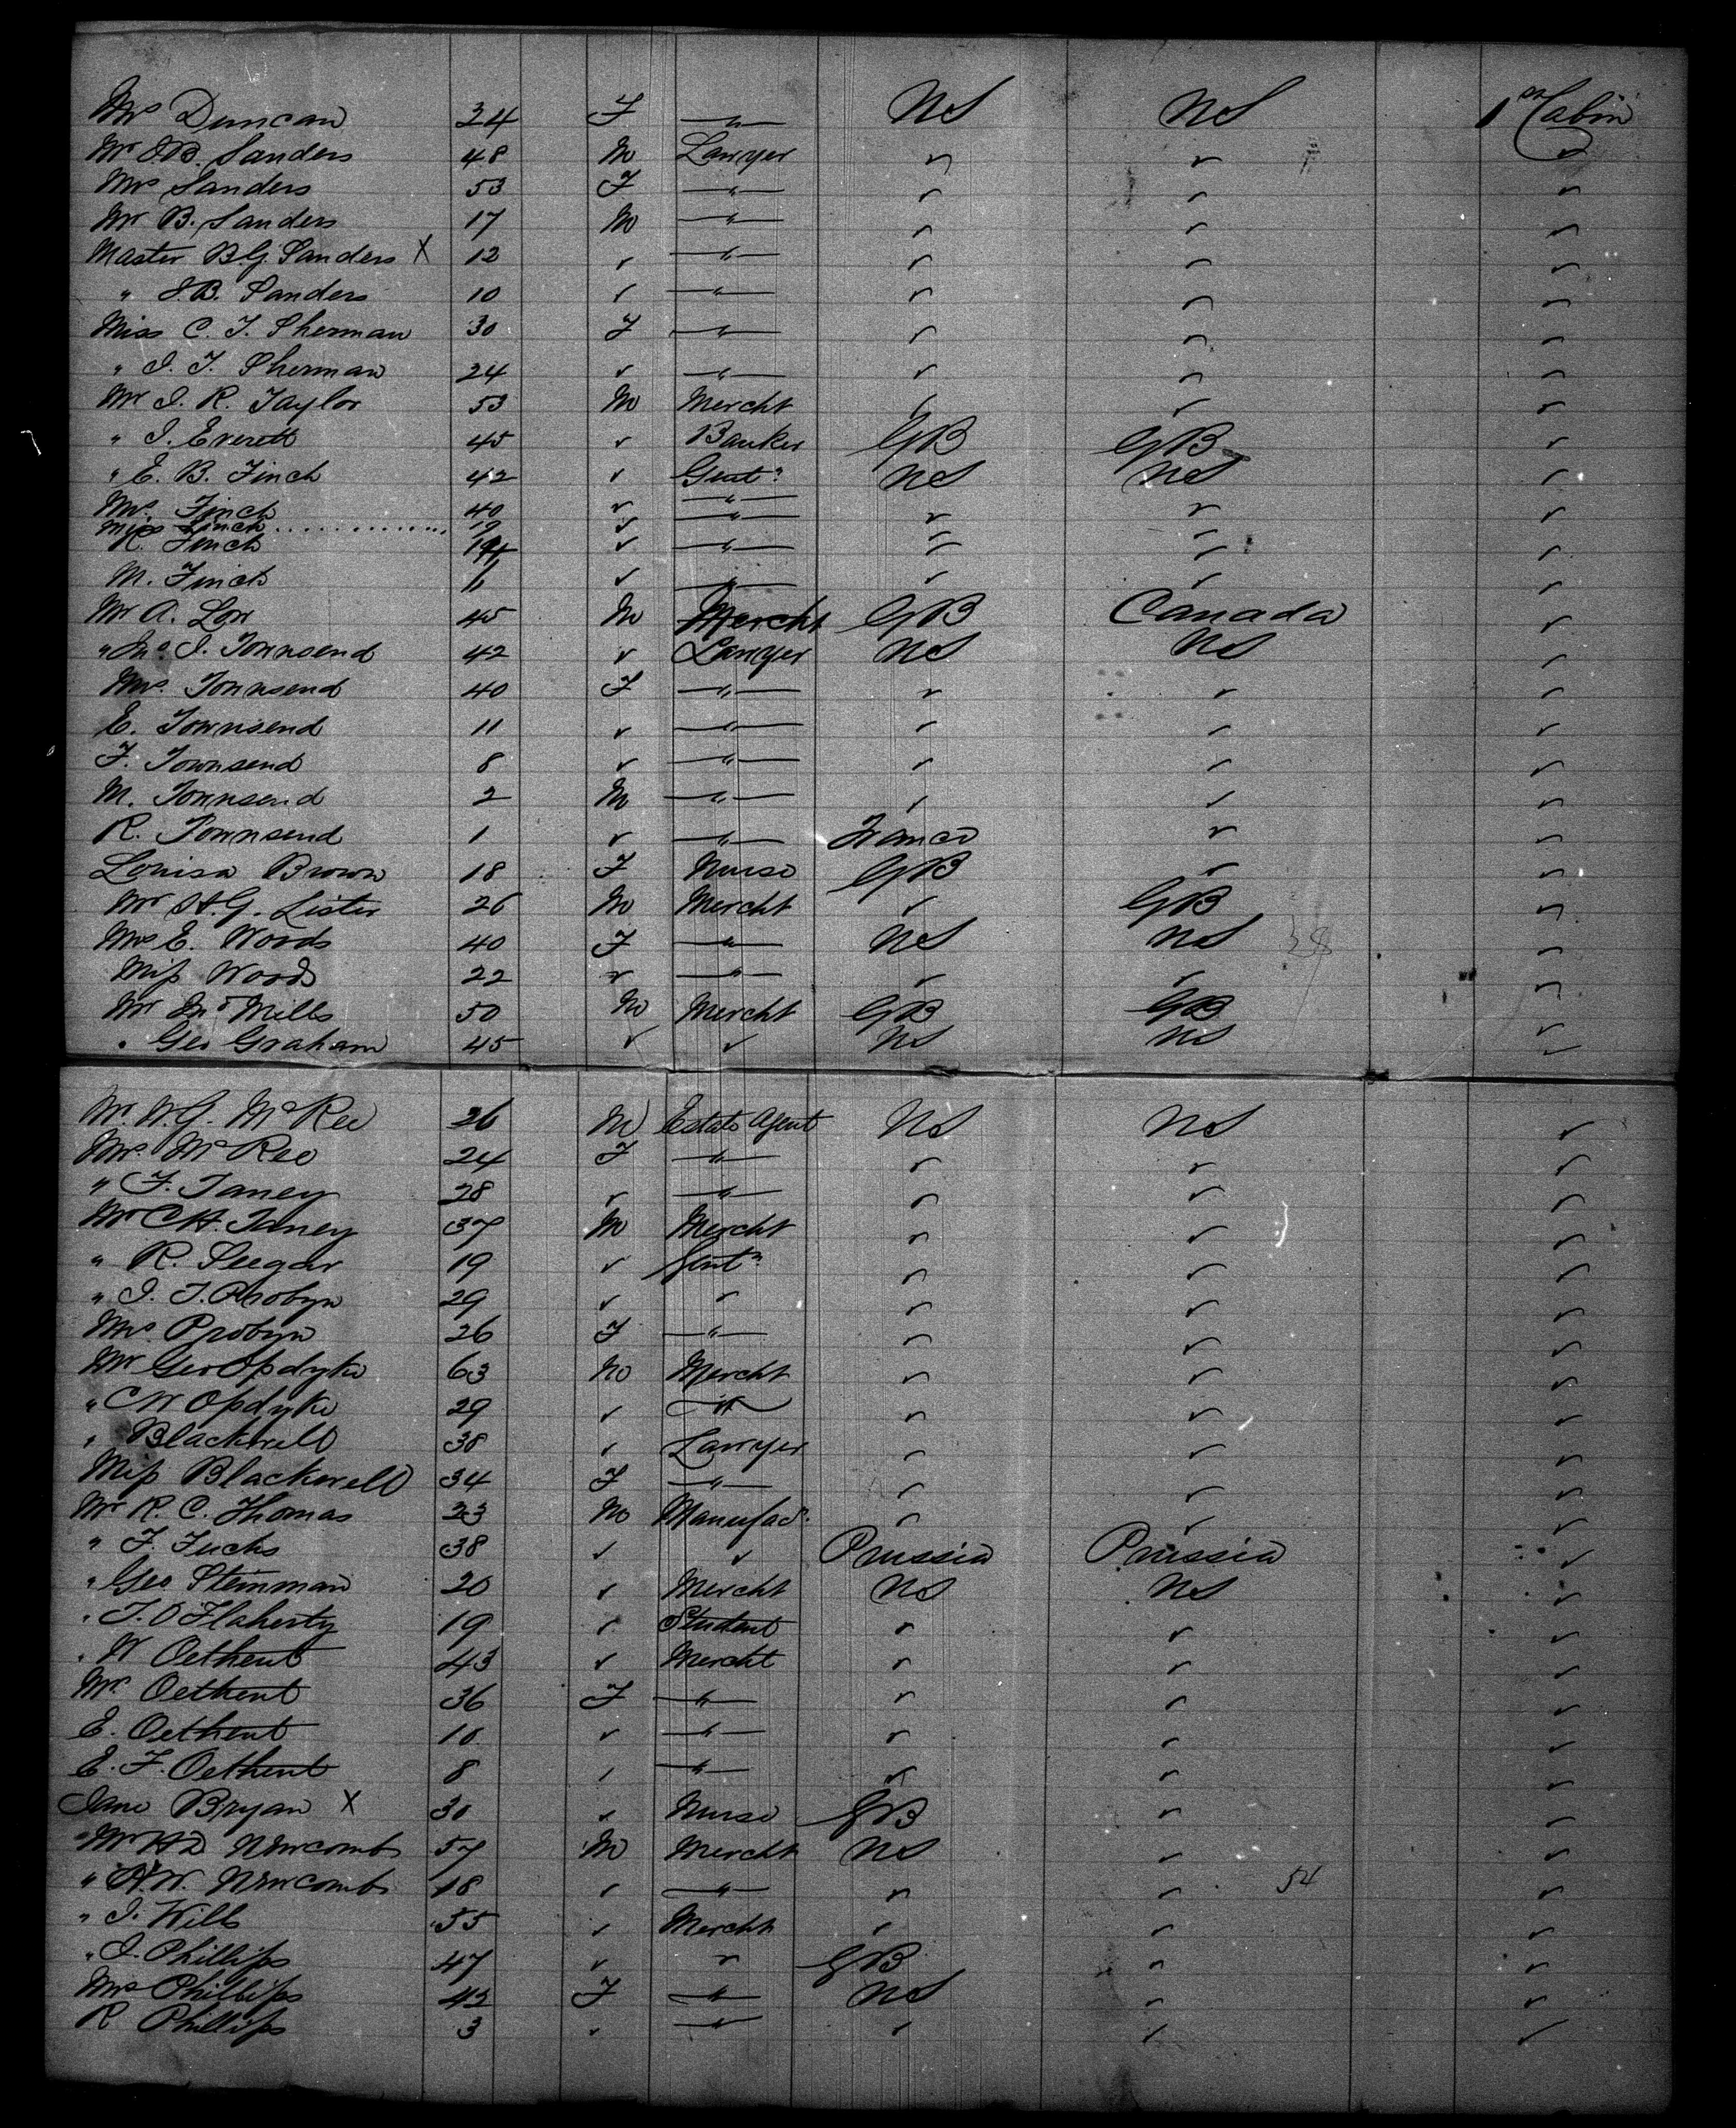 Mrs Duncan 24 F —„— US US 1st Cabin
Mr J.B. Sanders 48 M Lawyer ✓ ✓ ✓
Mrs Sanders 53 F —„— ✓ ✓ ✓
Mr B. Sanders 17 M —„— ✓ ✓ ✓
Master B.G. Sanders X 12 ✓ —„— ✓ ✓ ✓
„ J.B. Sanders 10 ✓ —„— ✓ ✓ ✓
Miss C. T. Sherman 30 F —„— ✓ ✓ ✓
„ I. T. Sherman 24 ✓ —„— ✓ ✓ ✓
Mr I. R. Taylor 53 M Mercht ✓ ✓ ✓
„ I. Everett 45 ✓ Banker GB GB ✓
„ E. B. Finch 42 ✓ Gentn US US ✓
Mrs. Finch 40 ✓ —„— ✓ ✓ ✓
Miss Finch 19 ✓ —„—
R. Finch 14 ✓ —„— ✓ ✓ ✓
M. Finch ✓ —„— ✓ ✓ ✓
Mr A. Low 45 M Mercht GB Canada ✓
„ Jno I. Townsend 42 ✓ Lawyer US US ✓
Mrs. Townsend 40 F —„— ✓ ✓ ✓
E. Townsend 11 ✓ —„— ✓ ✓ ✓
F. Townsend 8 ✓ —„— ✓ ✓ ✓
M. Townsend 2 M —„— ✓ ✓ ✓
R. Townsend 1 ✓ —„— France ✓ ✓
Louisa Brown 18 F Nurse GB ✓ ✓
Mr H.G. Lister 26 M Mercht ✓ GB ✓
Mrs E. Woods 40 F —„— US US 38 ✓
Miss Woods 22 ✓ —„— ✓ ✓ ✓
Mr Jno Mills 50 M Mercht GB GB ✓
„ Geo Graham 45 ✓ ✓ US US ✓
Mr. W.G. McRee 26 M Estate Agent US US ✓
Mrs. McRee 24 F —„— ✓ ✓ ✓
„ F. Taney 28 ✓ —„— ✓ ✓ ✓
Mr C.H. Taney 37 M Mercht ✓ ✓ ✓
„ R. Seegar 19 ✓ Gentn ✓ ✓ ✓
„ I. T. Probyn 29 ✓ ✓ ✓ ✓ ✓
Mrs. Probyn 26 F —„— ✓ ✓ ✓
Mr Geo Opdyke 63 M Mercht ✓ ✓ ✓
„ C W Opdyke 29 ✓ —„— ✓ ✓ ✓
„ Blackwell 38 ✓ Lawyer ✓ ✓ ✓
Miss Blackwell 34 F —„— ✓ ✓ ✓
Mr R. C. Thomas 23 M Manufac. ✓ ✓ ✓
„ F. Fuchs 38 ✓ ✓ Prussia Prussia ✓
„ Geo Steinman 20 ✓ Mercht US US ✓
„ T. O'Flaherty 19 ✓ Student ✓ ✓ ✓
„ W Oethent 43 ✓ Mercht ✓ ✓ ✓
Mrs Oethent 36 F —„— ✓ ✓ ✓
E. Oethent 10 ✓ —„— ✓ ✓ ✓
E. F. Oethent 8 ✓ —„— ✓ ✓ ✓
Jane Bryan X 30 ✓ Nurse GB ✓ ✓
Mr H D Newcomb 57 M Mercht US ✓ ✓
„ H.W. Newcomb 18 ✓ —„— ✓ ✓ 54 ✓
„ I. Wills 55 ✓ Mercht ✓ ✓ ✓
„ I. Phillips 47 ✓ ✓ GB ✓ ✓
Mrs Phillips 42 F —„— US ✓ ✓
R Phillips 3 ✓ —„— ✓ ✓ ✓